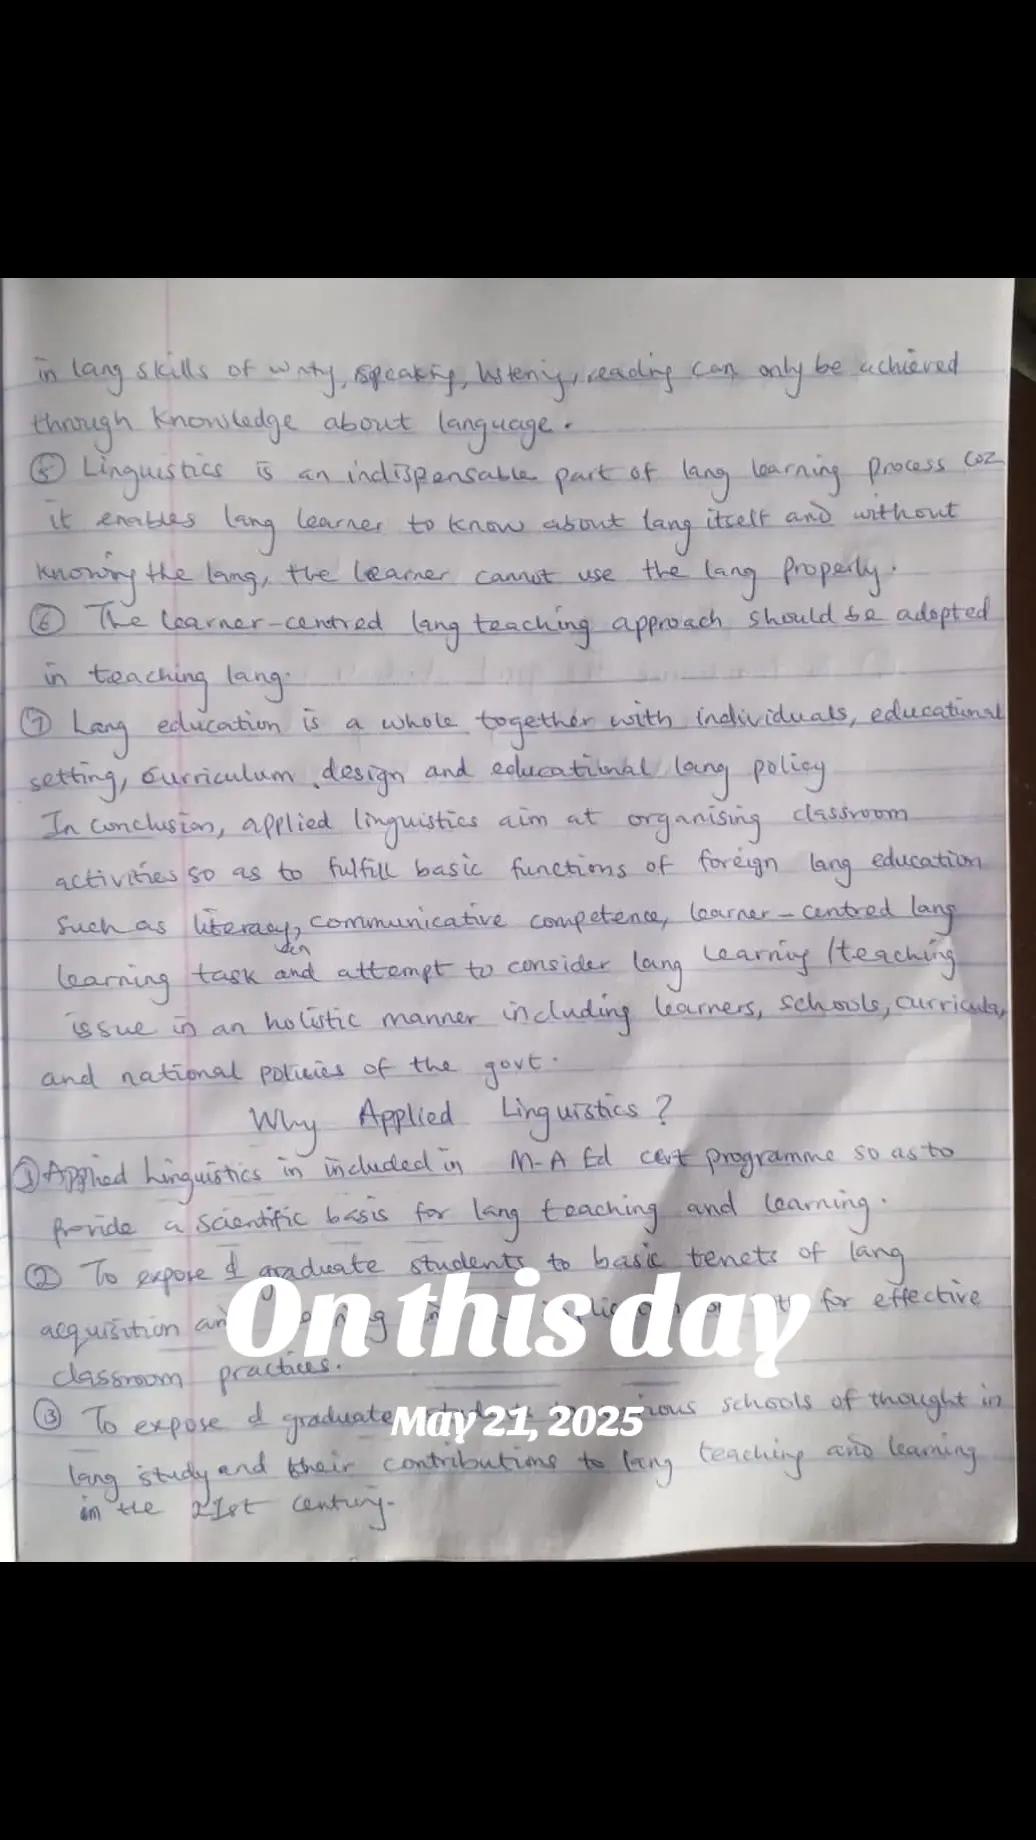 in lang skills of writg, speakig, listenig, readig can only be achieved
through knowledge about language.
⑤ Linguistics is an indispensable part of lang learning process coz
it enables lang learner to know about lang itself and without
knowing the lang, the learner cannot use the lang properly.
⑥ The learner-centred lang teaching approach should be adopted
in teaching lang.
⑦ Lang education is a whole together with individuals, educational
setting, curriculum design and educational lang policy
In conclusion, applied linguistics aim at organising classroom
activities so as to fulfill basic functions of foreign lang education
such as literacy, communicative competence, learner-centred lang
learning task and attempt to consider lang learning/teaching
issue in an holistic manner including learners, schools, curricula,
and national policies of the govt.
Why Applied Linguistics?
① Applied Linguistics in included in M-A Ed cert programme so as to
provide a scientific basis for lang teaching and learning.
② To expose d graduate students to basic tenets of lang
acquisition for effective
classroom practices.
③ To expose d graduate schools of thought in
lang study and their contributions to lang teaching and learning
in the 21st century.
On this day
May 21, 2025